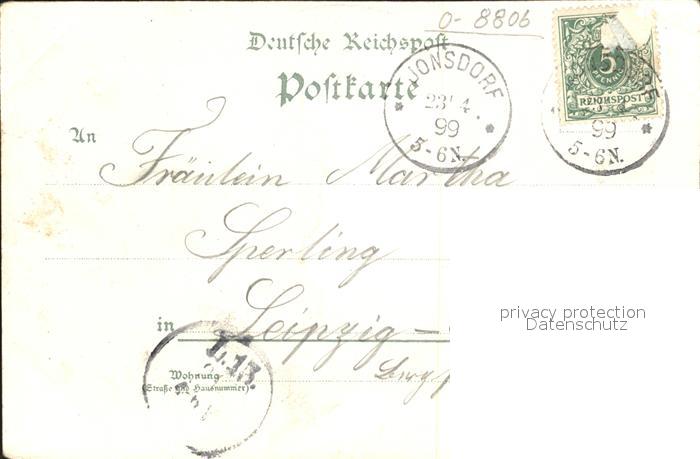 0-8806
Deutsche Reichspost
Postkarte
JONSDORF
23 4.
99
5-6N.
5
PFENNIG
REICHSPOST
99
5-6N.
An
Fräulein Martha
Sperling
in Leipzig-
Wohnung
(Straße und Hausnummer)
L.13.
privacy protection
Datenschutz